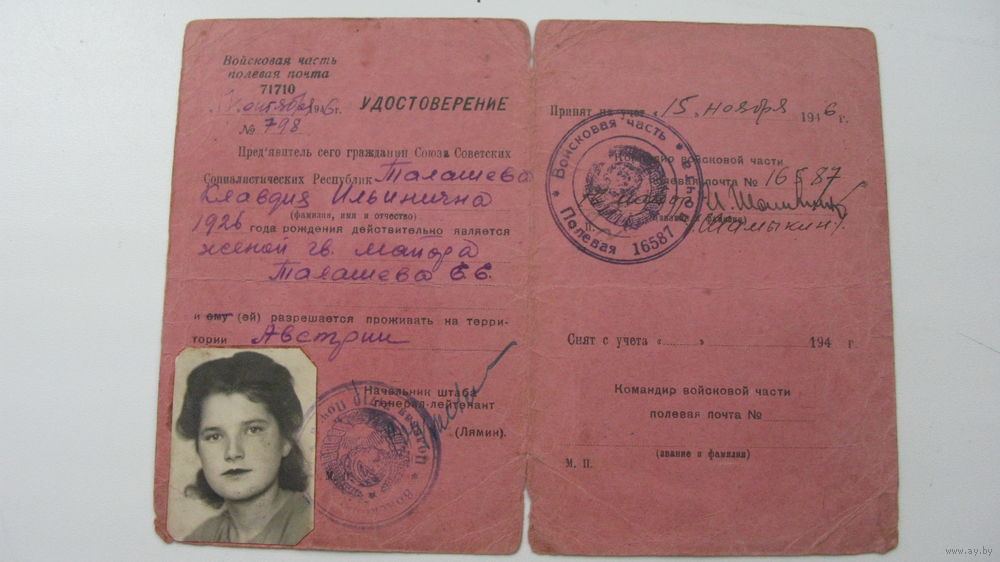 Войсковая часть
полевая почта
71710
октября 1946 г.
№ 798
УДОСТОВЕРЕНИЕ
Пред'явитель сего гражданин Союза Советских
Социалистических Республик Талашева
Клавдия Ильинична
(фамилия, имя и отчество)
1926 года рождения действительно является
женой гв. майора
Талашева Е.Е.
и ему (ей) разрешается проживать на терри-
тории Австрии
Начальник штаба
генерал-лейтенант
(Лямин).
М.
Принят на учет « 15 » ноября 1946 г.
Командир войсковой части
полевая почта № 16587
майор
(звание и фамилия)
Войсковая часть * Полевая почта * 16587
Снят с учета « » 194 г.
Командир войсковой части
полевая почта №
(звание и фамилия)
М. П.
www.ay.by